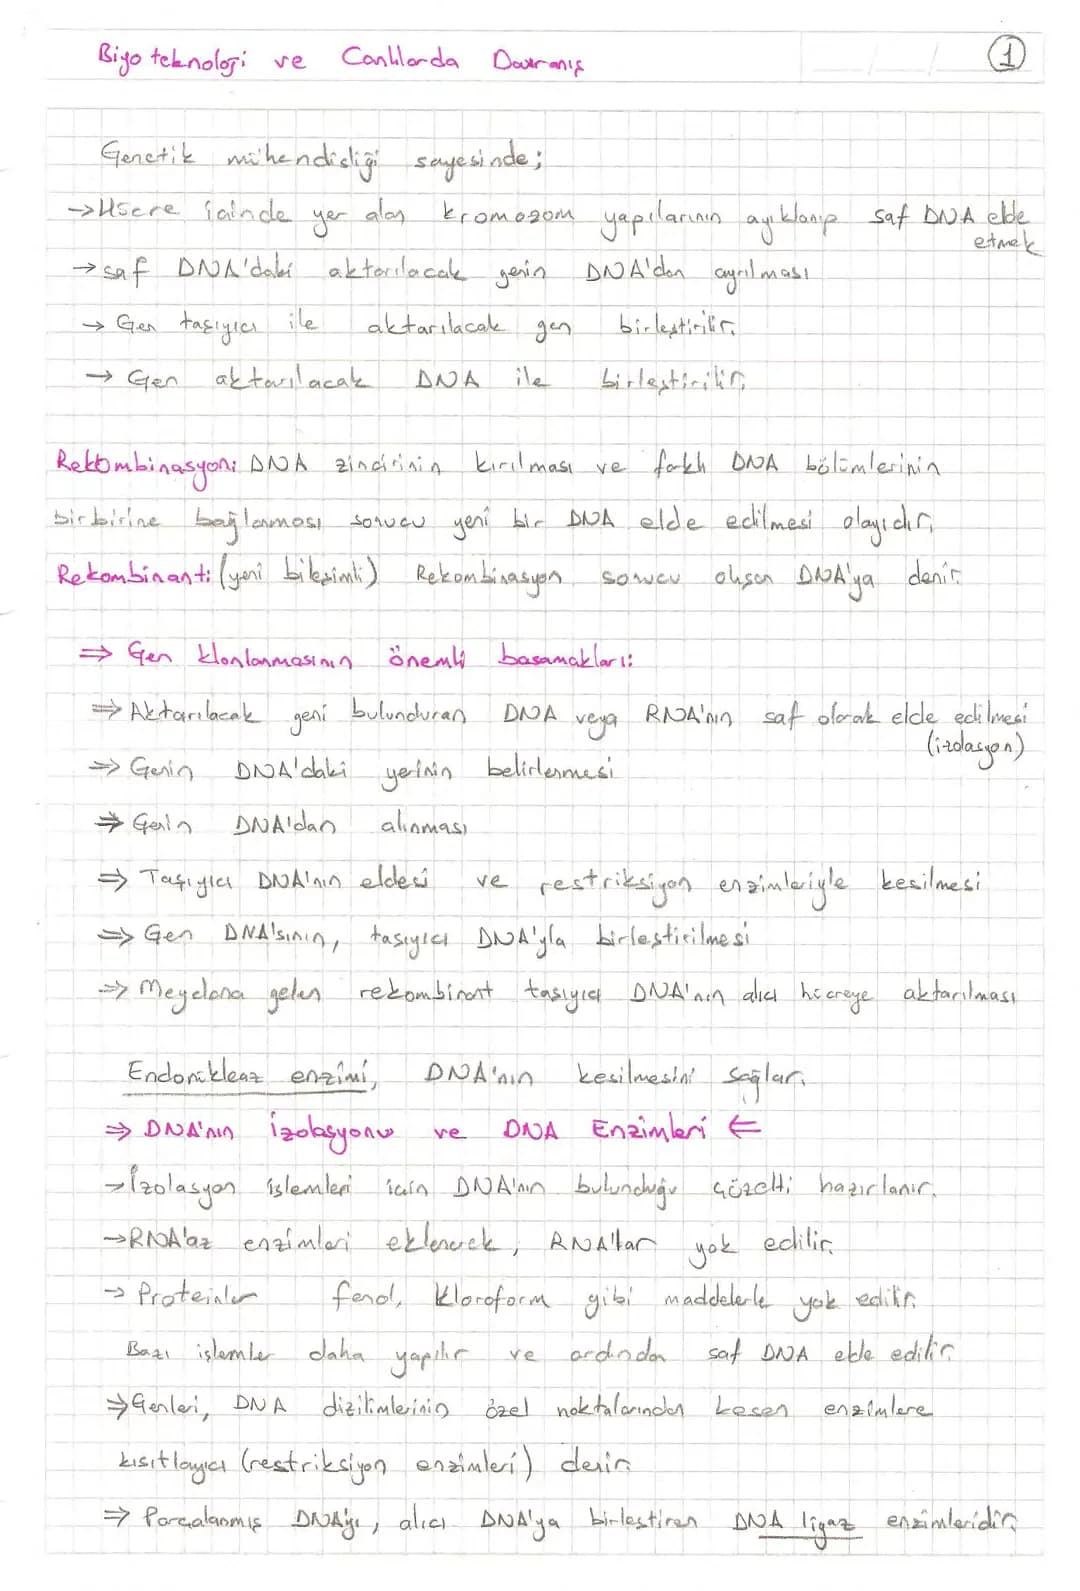 Biyoteknoloji ve Canlılarda Davranış
1
Genetik mühendisliği sayesinde;
→ Hücre içinde yer alan kromozom yapılarının ayıklanıp saf DNA elde
etmek
→ saf DNA'daki aktarılacak genin DNA'dan ayrılması
→ Gen taşıyıcı ile aktarılacak gen birleştirilir.
→ Gen aktarılacak DNA ile birleştirilir.
Rekombinasyon: DNA zincirinin kırılması ve farklı DNA bölümlerinin
birbirine bağlanması sonucu yeni bir DNA elde edilmesi olayıdır.
Rekombinant: (yeni bileşimli) Rekombinasyon sonucu oluşan DNA'ya denir.
⇒ Gen klonlanmasının önemli basamakları:
⇒ Aktarılacak geni bulunduran DNA veya RNA'nın saf olarak elde edilmesi
(izolasyon)
⇒ Genin DNA'daki yerinin belirlenmesi
⇒ Genin DNA'dan alınması
⇒ Taşıyıcı DNA'nın eldesi ve restriksiyon enzimleriyle kesilmesi
⇒ Gen DNA'sının, taşıyıcı DNA'yla birleştirilmesi
⇒ Meydana gelen rekombinant taşıyıcı DNA'nın alıcı hücreye aktarılması
Endonükleaz enzimi, DNA'nın kesilmesini sağlar.
⇒ DNA'nın İzolasyonu ve DNA Enzimleri ⇐
→ İzolasyon işlemleri için DNA'nın bulunduğu çözelti hazırlanır.
→ RNA'az enzimleri eklenerek, RNA'lar yok edilir.
→ Proteinler fenol, kloroform gibi maddelerle yok edilir.
Bazı işlemler daha yapılır ve ardından saf DNA elde edilir.
⇒ Genleri, DNA dizilimlerinin özel noktalarından kesen enzimlere
kısıtlayıcı (restriksiyon enzimleri) denir.
⇒ Parçalanmış DNA'yı, alıcı DNA'ya birleştiren DNA ligaz enzimleridir.